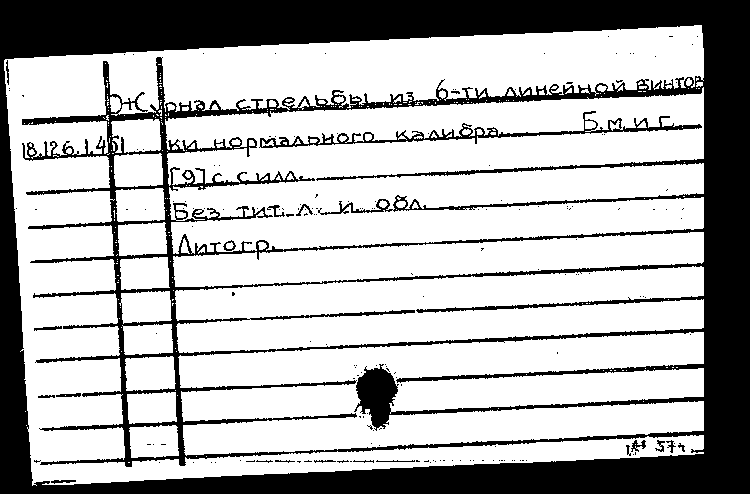 Журнал стрельбы из 6-ти линейной винтов
18.126.1.451 ки нормального калибра. Б.м. и г.
[9] с. с илл.
Без тит. л. и обл.
Литогр.